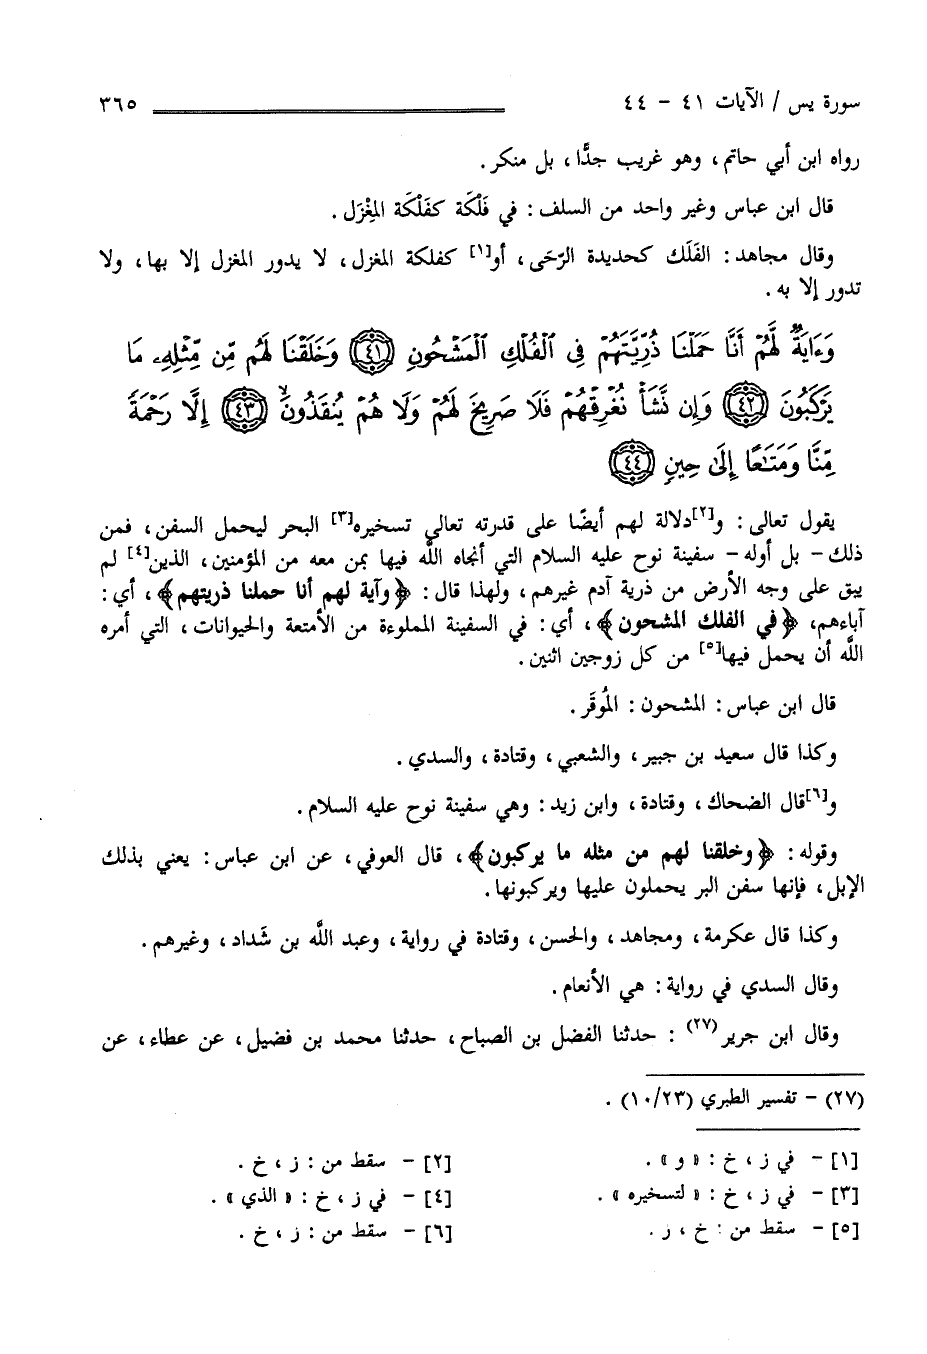 سورة يس / الآيات ٤١ - ٤٤ ٣٦٥
رواه ابن أبي حاتم ، وهو غريب جدًّا ، بل منكر .
قال ابن عباس وغير واحد من السلف : في فَلْكَة كفَلْكَة المِغْزَل .
وقال مجاهد : الفَلَك كحديدة الرّحَى ، أو[١] كفلكة المغزل ، لا يدور المغزل إلا بها ، ولا
تدور إلا به .
وَءَايَةٌ لَّهُمْ أَنَّا حَمَلْنَا ذُرِّيَّتَهُمْ فِي ٱلْفُلْكِ ٱلْمَشْحُونِ ٤١ وَخَلَقْنَا لَهُم مِّن مِّثْلِهِۦ مَا
يَرْكَبُونَ ٤٢ وَإِن نَّشَأْ نُغْرِقْهُمْ فَلَا صَرِيخَ لَهُمْ وَلَا هُمْ يُنقَذُونَ ٤٣ إِلَّا رَحْمَةً
مِّنَّا وَمَتَٰعًا إِلَىٰ حِينٍ ٤٤
يقول تعالى : و[٢]دلالة لهم أيضًا على قدرته تعالى تسخيره[٣] البحر ليحمل السفن ، فمن
ذلك - بل أوله - سفينة نوح عليه السلام التي أنجاه الله فيها بمن معه من المؤمنين ، الذين[٤] لم
يبق على وجه الأرض من ذرية آدم غيرهم ، ولهذا قال : ﴿وآية لهم أنا حملنا ذريتهم﴾ ، أي :
آباءهم، ﴿في الفلك المشحون﴾ ، أي : في السفينة المملوءة من الأمتعة والحيوانات ، التي أمره
الله أن يحمل فيها[٥] من كل زوجين اثنين .
قال ابن عباس : المشحون : المُوقَر .
وكذا قال سعيد بن جبير ، والشعبي ، وقتادة ، والسدي .
و[٦]قال الضحاك ، وقتادة ، وابن زيد : وهي سفينة نوح عليه السلام.
وقوله : ﴿وخلقنا لهم من مثله ما يركبون﴾ ، قال العوفي ، عن ابن عباس : يعني بذلك
الإبل ، فإنها سفن البر يحملون عليها ويركبونها .
وكذا قال عكرمة ، ومجاهد ، والحسن ، وقتادة في رواية ، وعبد الله بن شَداد ، وغيرهم .
وقال السدي في رواية : هي الأنعام .
وقال ابن جرير(٢٧) : حدثنا الفضل بن الصباح، حدثنا محمد بن فضيل ، عن عطاء ، عن
(٢٧) - تفسير الطبري (١٠/٢٣) .
[١] - في ز ، خ : « و » . [٢] - سقط من : ز ، خ .
[٣] - في ز ، خ : « لتسخيره » . [٤] - في ز ، خ : « الذي » .
[٥] - سقط من : خ ، ر . [٦] - سقط من : ز ، خ .